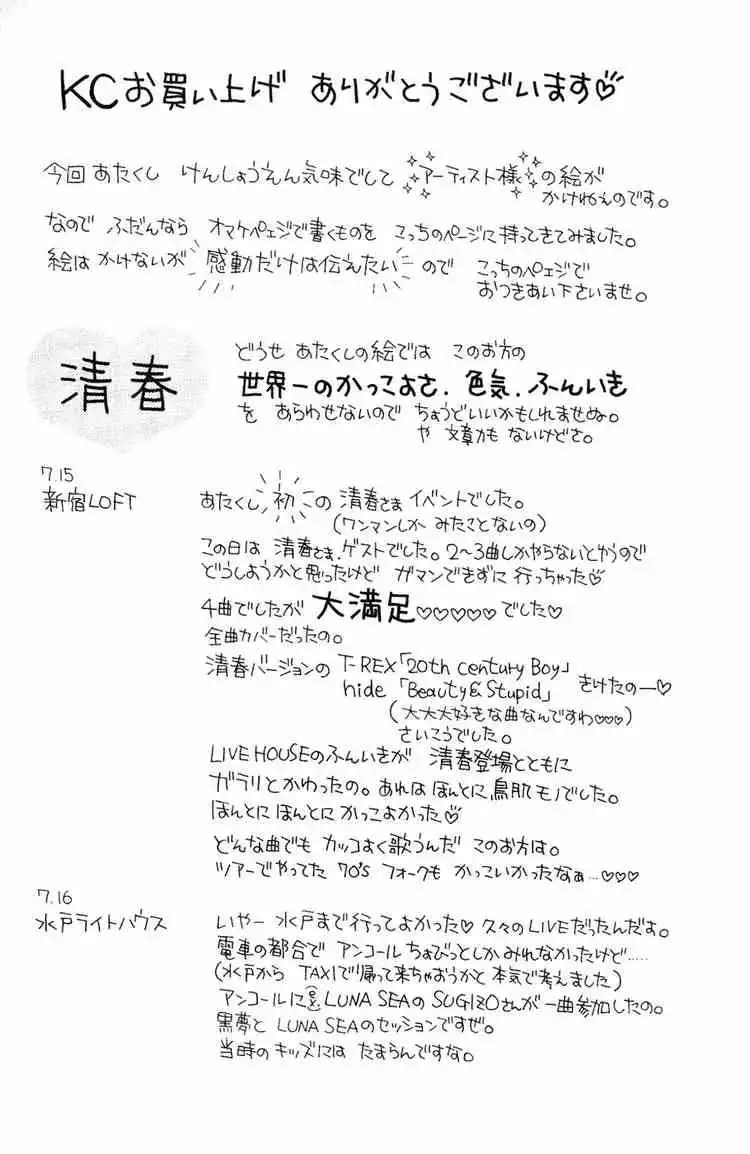 KCお買い上げ ありがとうございます♡
今回 あたくし けんしょうえん気味でして アーティスト様の絵が
かけねぇのです。
なので ふだんなら オマケペェジで書くものを こっちのページに持ってきてみました。
絵は かけないが 感動だけは伝えたい ので こっちのペェジで
おつきあい下さいませ。
清春
どうせ あたくしの絵では このお方の
世界一のかっこよさ.色気.ふんいき
を あらわせないので ちょうどいいかもしれませぬ。
や 文章力も ないけどさ。
7.15
新宿LOFT
あたくし 初 の 清春さま イベントでした。
(ワンマンしか みたことないの)
この日は 清春さま.ゲストでした。2〜3曲しかやらないとゆうので
どうしようかと思ったけど ガマンできずに 行っちゃった♡
4曲でしたが 大満足♡♡♡♡♡でした♡
全曲カバーだったの。
清春バージョンの T-REX「20th century Boy」
hide 「Beauty & Stupid」 きけたのー♡
(大大大好きな曲なんですわ♡♡♡)
さいこうでした。
LIVE HOUSEのふんいきが 清春登場とともに
ガラリとかわったの。あれは ほんとに鳥肌モノでした。
ほんとに ほんとに かっこよかった♡
どんな曲でも カッコよく歌うんだ このお方は。
ツアーでやってた 70's フォークも かっこいかったなぁ…♡♡♡
7.16
水戸ライトハウス
いやー 水戸まで行ってよかった♡ 久々のLIVEだったんだよ。
電車の都合で アンコール ちょびっとしか みれなかったけど……
(水戸から TAXIで帰って来ちゃおうかと 本気で考えました)
アンコールに LUNA SEAの SUGIZOさんが 一曲参加したの。
黒夢と LUNA SEAのセッションですぜ。
当時のキッズには たまらんですな。